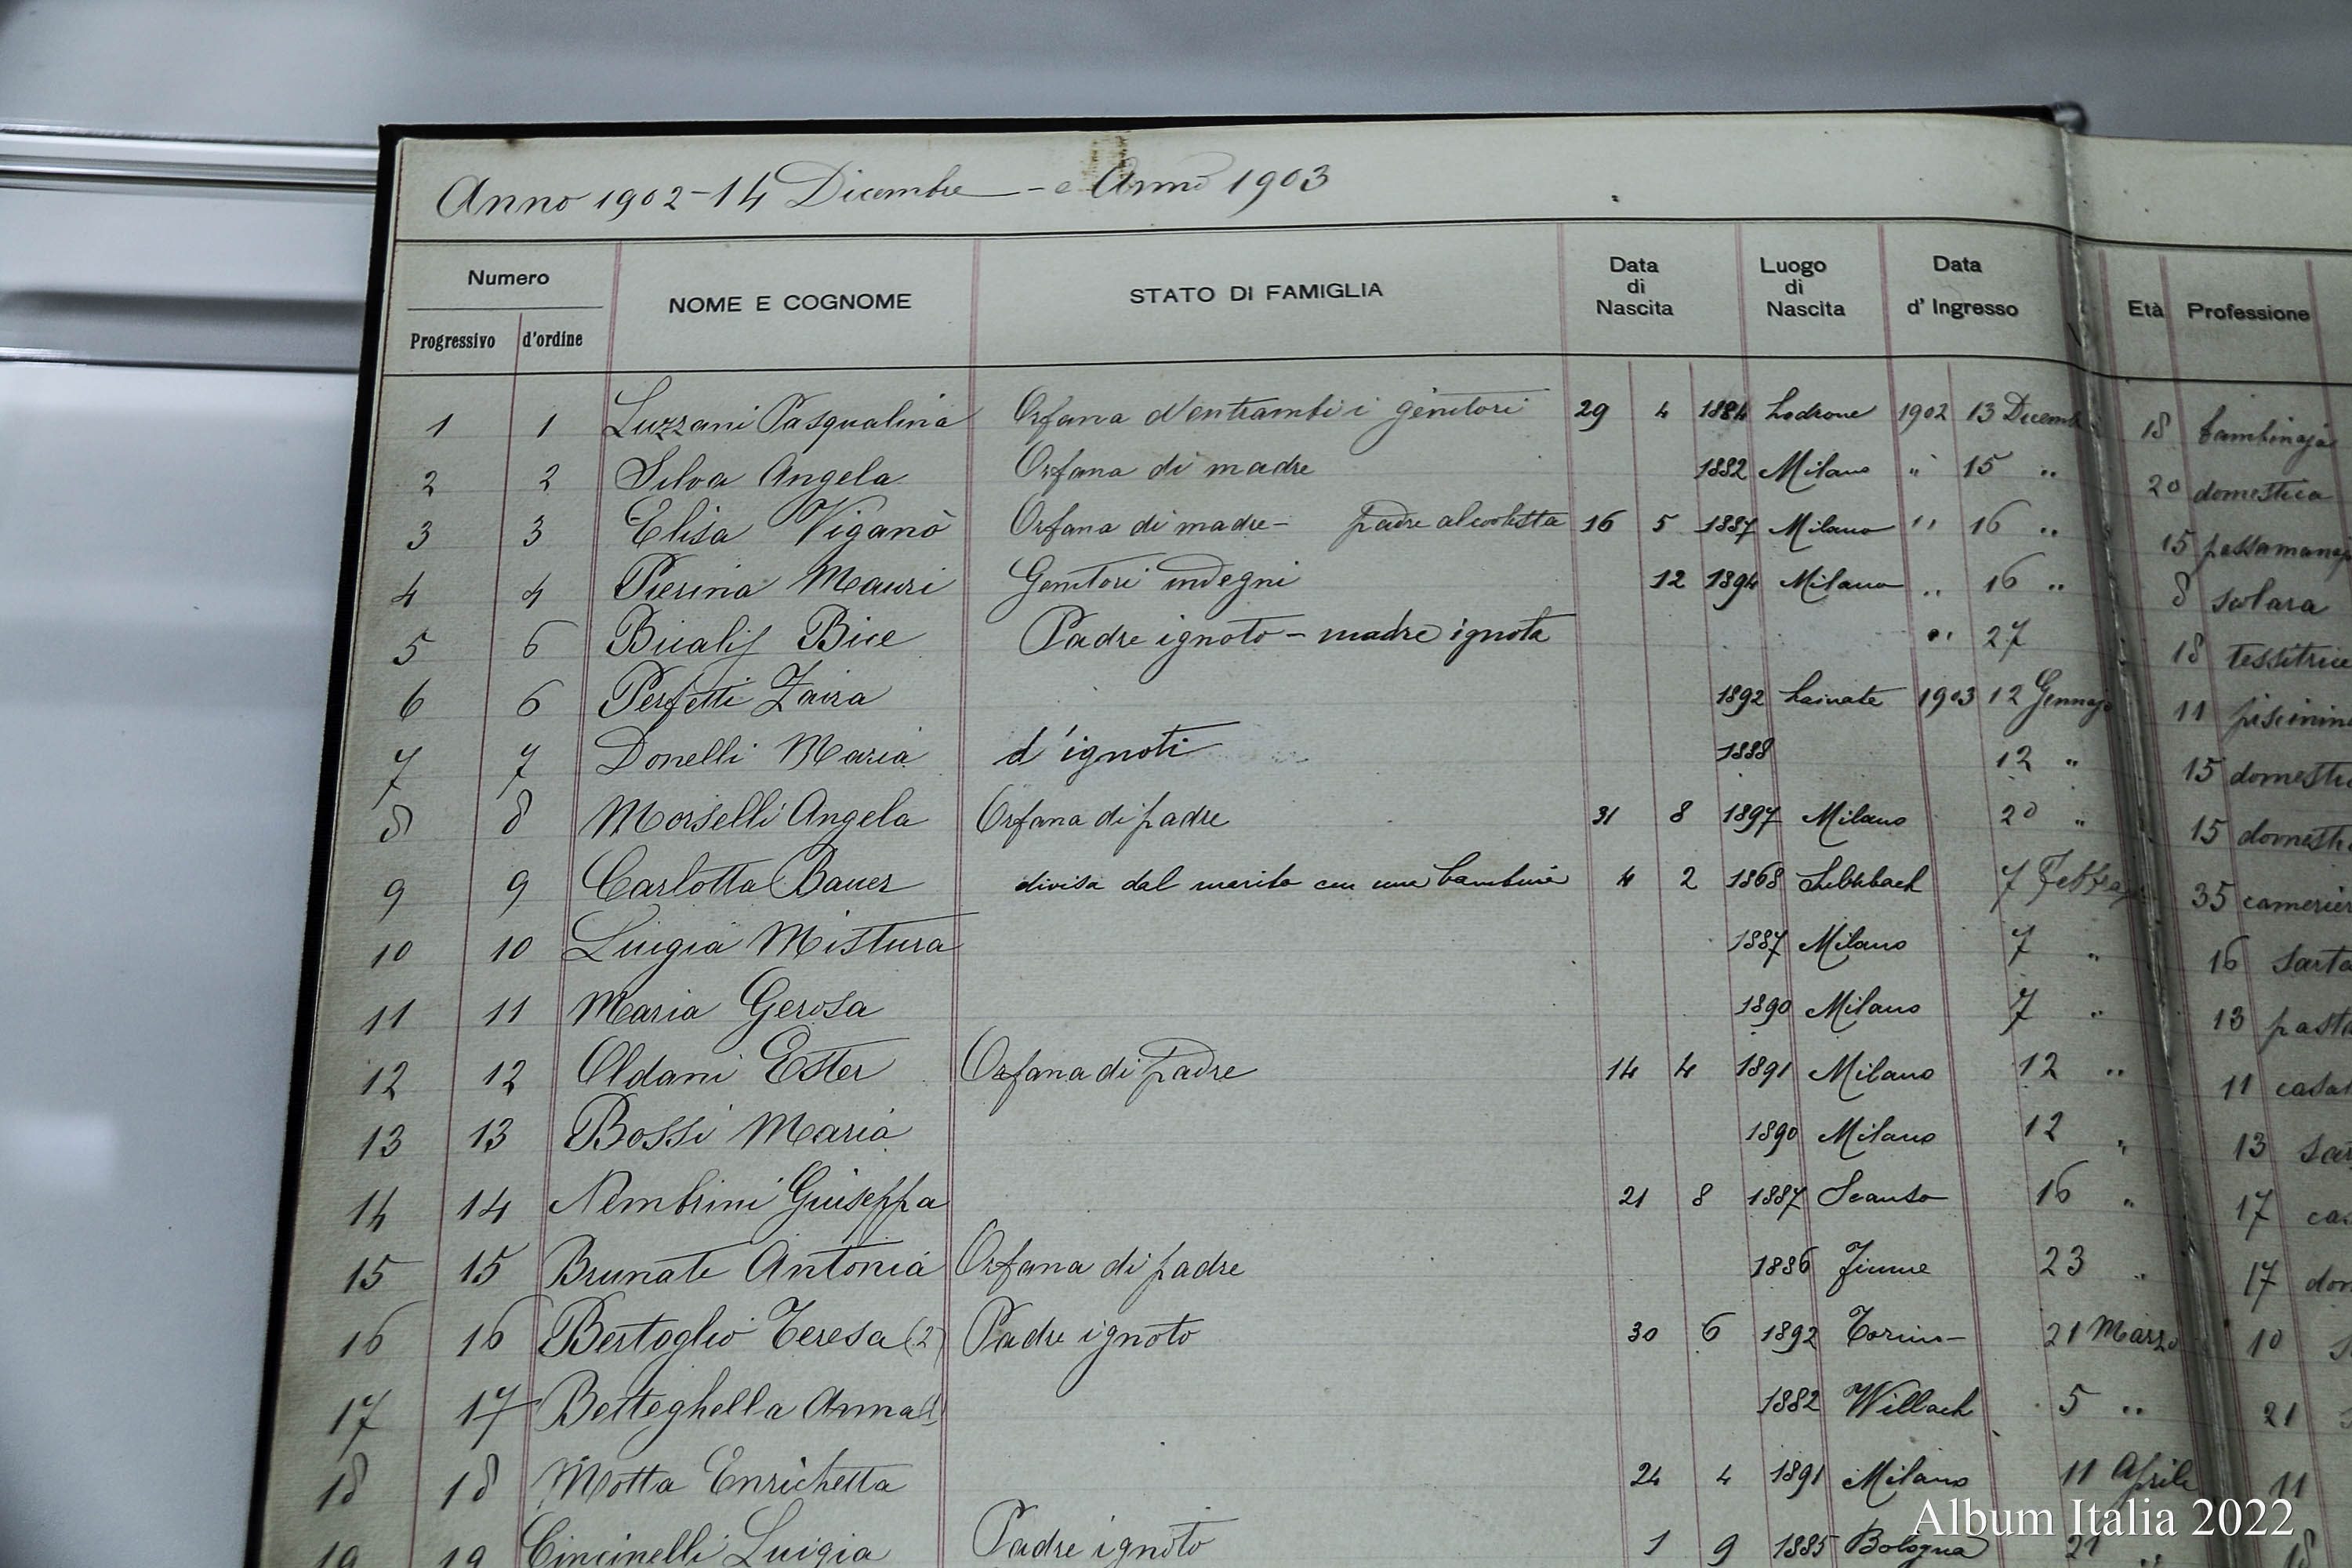 Anno 1902-14 Dicembre - e Anno 1903
Numero
Progressivo d'ordine
NOME E COGNOME
STATO DI FAMIGLIA
Data di Nascita
Luogo di Nascita
Data d' Ingresso
Età
Professione
1 1 Luzzani Pasqualina Orfana d'entrambi i genitori 29 4 1884 Lodrone 1902 13 Dicemb 18 bambinaja
2 2 Silva Angela Orfana di madre 1882 Milano " 15 " 20 domestica
3 3 Elisa Viganò Orfana di madre - padre alcoolista 16 5 1887 Milano " 16 " 15 passamanaj
4 4 Pierina Mauri Genitori indegni 12 1894 Milano " 16 " 8 scolara
5 6 Bice Padre ignoto - madre ignota " 27 18 tessitrice
6 6 Perfetti Zaira 1892 Lainate 1903 12 Gennajo 11 piscinin
7 7 Donelli Maria d'ignoti 1888 12 " 15 domesti
8 8 Morselli Angela Orfana di padre 31 8 1897 Milano 20 " 15 domesti
9 9 Carlotta Bauer divisa dal marito con una bambina 4 2 1868 7 Febbraj 35 camerier
10 10 Luigia Mistura 1887 Milano 7 " 16 sarta
11 11 Maria Gerosa 1890 Milano 7 " 13 past
12 12 Oldani Ester Orfana di padre 14 4 1891 Milano 12 " 11 casal
13 13 Bossi Maria 1890 Milano 12 " 13 sar
14 14 Nembrini Giuseppa 21 8 1887 16 " 17 ca
15 15 Brunate Antonia Orfana di padre 1886 Fiume 23 " 17 dom
16 16 Bertoglio Teresa (2) Padre ignoto 30 6 1892 Torino 21 Marzo 10 s
17 17 Betteghella Anna 1882 Willach 5 " 21
18 18 Motta Enrichetta 24 4 1891 Milano 11 Aprile 11
19 19 Cincinelli Luigia Padre ignoto 1 9 1885 Bologna 21 " 18
Album Italia 2022